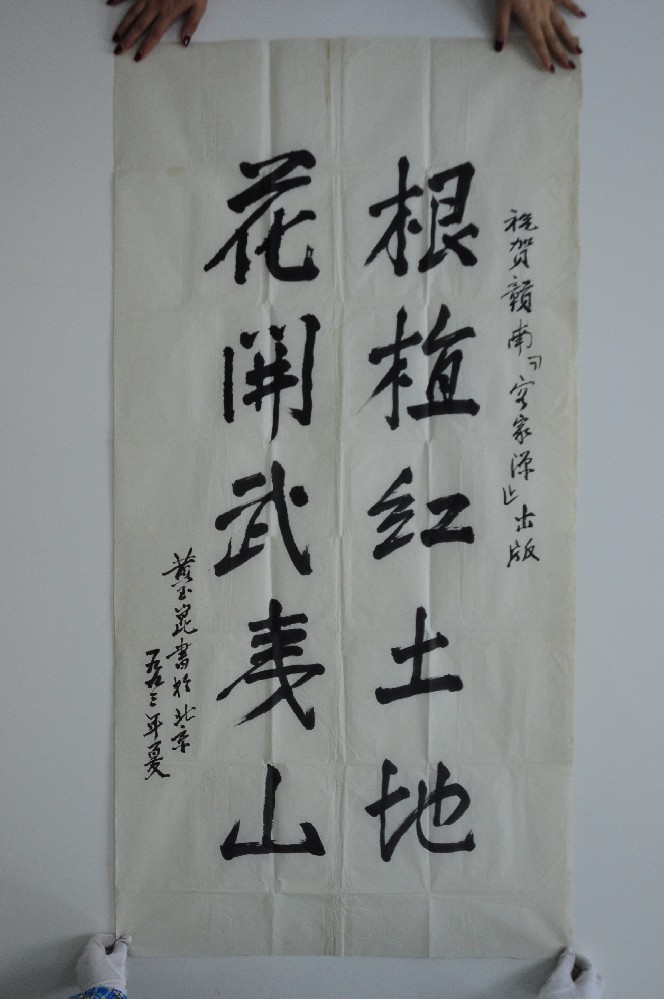 祝贺赣南『客家源』出版
根植红土地
花開武夷山
黄玉崑書於北京
一九九三年夏